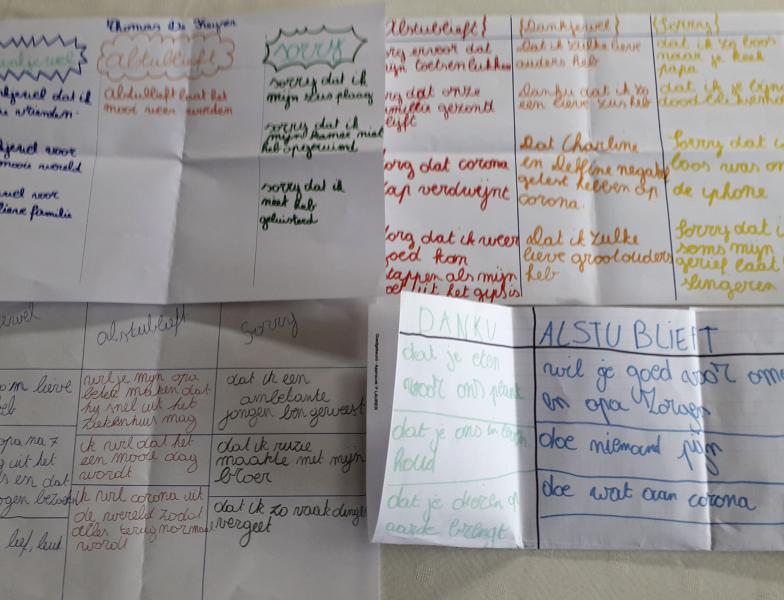 Thomas De Keyser
Alstublieft
sorry
dat ik
vrienden
Alstublieft laat het
mooi weer worden
sorry dat ik
mijn zus plaag
sorry dat ik
mijn kamer niet
heb opgeruimd
voor
mooie wereld
voor
lieve familie
sorry dat ik
niet heb
geluisterd
Alstublieft}
{Dankjewel}
{Sorry}
ervoor dat
toetsen lukken
dat onze
gezond
dat corona
verdwijnt
dat ik weer
kan
als mijn
uit het gips is
dat ik zulke lieve
ouders heb
Danku dat ik zo
een lieve zus heb
Dat Charline
en Delfine negatief
getest hebben op
corona.
dat ik zulke
lieve grootouders
heb
dat ik zo boos
naar je keek
papa
dat ik je bijna
Sorry dat ik
boos was om
de iphone
Sorry dat ik
soms mijn
gerief laat
slingeren
alstublieft
Sorry
lieve
wil je mijn opa
beter maken dat
hij snel uit het
ziekenhuis mag
dat ik een
ambetante
jongen ben geweest
opa na 7
uit het
en dat
ik wil dat het
een mooie dag
wordt
dat ik ruzie
maakte met mijn
broer
lief, leuk
ik wil corona uit
de wereld zodat
alles terug normaal
wordt
dat ik zo vaak dingen
vergeet
DANKU
ALSTUBLIEFT
dat je eten
voor ons
wil je goed voor oma
en opa zorgen
dat je ons
houd
doe niemand pijn
dat je dieren op
aarde brengt
doe wat aan corona